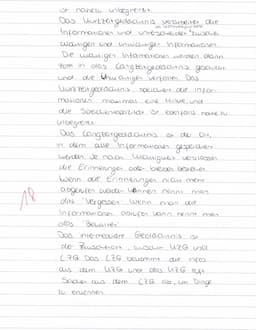 ist nahezu unbegrenzt.
Das Kurzzeitgedächtnis verarbeitet die
Informationen und unterscheidet zwischen
wichtigen und unwichtigen Informationen.
Die wichtigen Informationen werden dann
in das Langzeitgedächtnis gespeichert
und die unwichtigen verfallen. Das
Kurzzeitgedächtnis speichert die Infor-
mationen maximal eine Minute, und
die Speicherkapazität ist ebenfalls nahezu
unbegrenzt.
Das Langzeitgedächtnis ist der Ort,
in dem alle Informationen gespeichert
werden. Je nach Wichtigkeit verblassen
die Erinnerungen oder bleiben bestehen.
Wenn die Erinnerungen nicht mehr
abgerufen werden können nennt man
das Vergessen. Wenn man die
Informationen abrufen kann nennt man
das Behalten.
Das intermediäre Gedächtnis ist
die zwischen KZG und
LZG. Das LZG bekommt die Infos
aus dem KZG und das KZG ruft
aus dem LZG ab, um Dinge
zu erkennen.
18